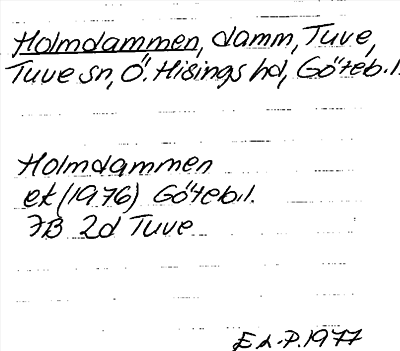 Holmdammen, damm, Tuve,
Tuve sn, Ö. Hisings hd, Göteb.l.
Holmdammen
ek (1976) Göteb.l.
7B 2d Tuve
E L-P. 1977